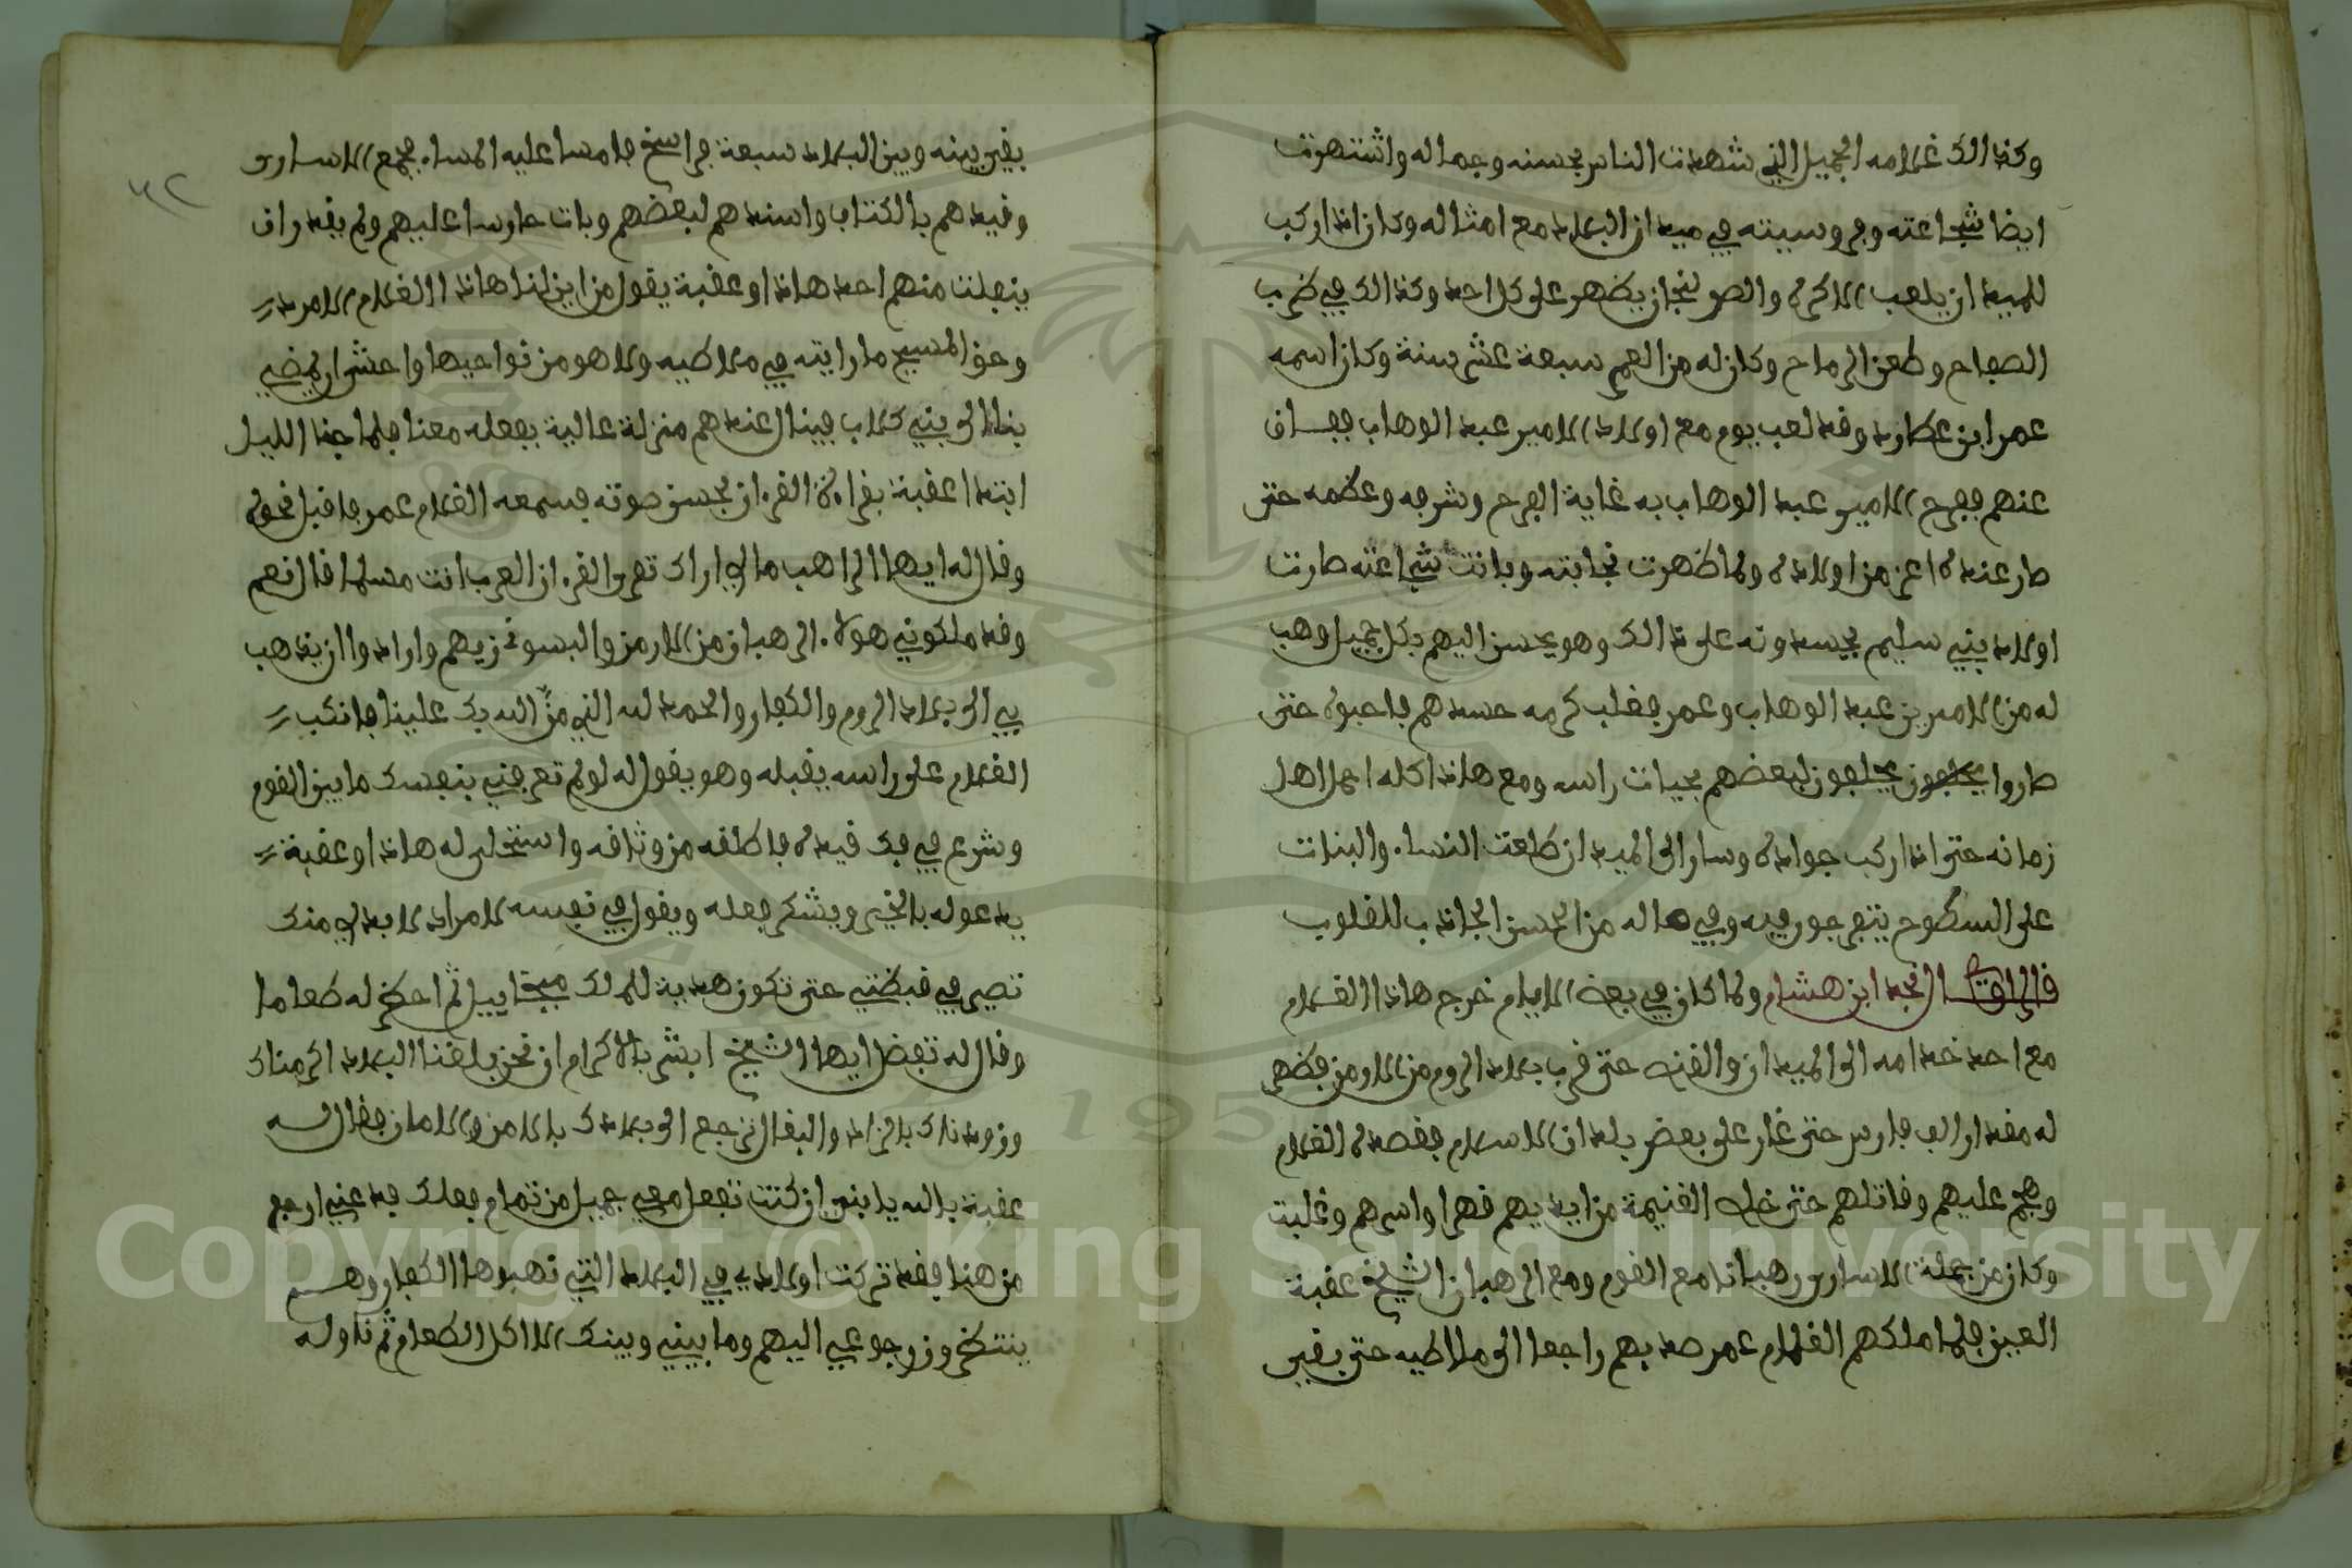 وكذالك غلامه الجميل الذي شهدت الناس بحسنه وجماله واشتهرت
ايضا شجاعته وفروسيته في ميدان البلاد مع امثاله وكان اذا ركب
للميدا ان يلعب الاكره والصولجان يظهر على كل احد وكذالك في ضرب
الصفاح وطعن الرماح وكان له من العمر سبعة عشر سنة وكان اسمه
عمر ابن عطارد وقد لعب يوم مع اولاد الامير عبد الوهاب ففاق
عنهم ففرح الامير عبد الوهاب به غاية الفرح وشرفه وعظمه حتى
صار عنده اعز من اولاده ولما ظهرت نجابته وبانت شجاعته صارت
اولاد بني سليم يحسدونه على ذالك وهو يحسن اليهم بكل جميل وهب
له من الاميرين عبد الوهاب وعمر فغلب كرمه حسدهم فاحبوه حتى
صاروا يحلفون يحلفون لبعضهم بحيات راسه ومع هاذا كله اجمل اهل
زمانه حتى اذا ركب جواده وسار الى الميدان طلعت النساء والبنات
على السطوح يتفرجون فيه وفي ماله من الحسن الجاذب للقلوب
قال الراوي نجد ابن هشام ولما كان في بعض الايام خرج هاذا الغلام
مع احد خدامه الى الميدان والقنص حتى قرب بلاد الروم من الارمن فظهر
له مقدار الف فارس حتى غار على بعض بلدان الاسلام فقصده الغلام
وهجم عليهم وقاتلهم حتى خلص الغنيمة من ايديهم قهرا واسرهم وغلبت
وكان من جملة الاسارى رهبانا مع القوم ومع الرهبان الشيخ عقبة
العين فلما ملكهم الغلام عمر صد بهم راجعا الى ملاطيه حتى بقى
بقى بينه وبين البلاد سبعة فراسخ فامسا عليه المساء فجمع الاسارى
وقيدهم بالكتاف واسندهم لبعضهم وبات حارسا عليهم ولم يقدر ان
ينفلت منهم احد هاذا وعقبة يقول من اين لنا هاذا الغلام الامرد
وحق المسيح ما رايته في ملاطيه ولا هو من نواحيها واخشى ان يمضي
بنا الى بني كلاب فينال عندهم منزلة عالية بفعله معنا فلما جنا الليل
ابتدا عقبة بقراءة القرءان بحسن صوته فسمعه الغلام عمر فاقبل نحوه
وقال له ايها الراهب مالي اراك تقرا القرءان العرب انت مسلما قال نعم
وقد ملكوني هولاء الرهبان من الارمن والبسوني زيهم وارادوا ان يذهب
بي الى بلاد الروم والكفار والحمد لله الذي منّ الله بك علينا فانكب
الغلام على راسه يقبله وهو يقول له لو لم تعرفني بنفسك ما بين القوم
وشرع في فك قيده فاطلقه من وثاقه واستحلل له هاذا وعقبة
يدعوله بالخير ويشكر فعله ويقول في نفسه لامراد لابد لي منك
تصير في قبضتي حتى تكون هدية للملك ميخاييل ثم احضر له طعاما
وقال له تفضل ايها الشيخ ابشر بالاكرام ان نحن بلغنا البلاد اكرمناك
وزودناك بالزاد والبغال ترجع الى بلادك بالامن والامان فقال له
عقبة بالله يا بني ان كنت تفعل معي جميل من تمام فعلك فدعني ارجع
من هنا فقد تركت اولادي في البلاد التي نهبوها الكفار وهم
ينتظروا رجوعي اليهم وما بيني وبينك الا اكل الطعام ثم ناوله